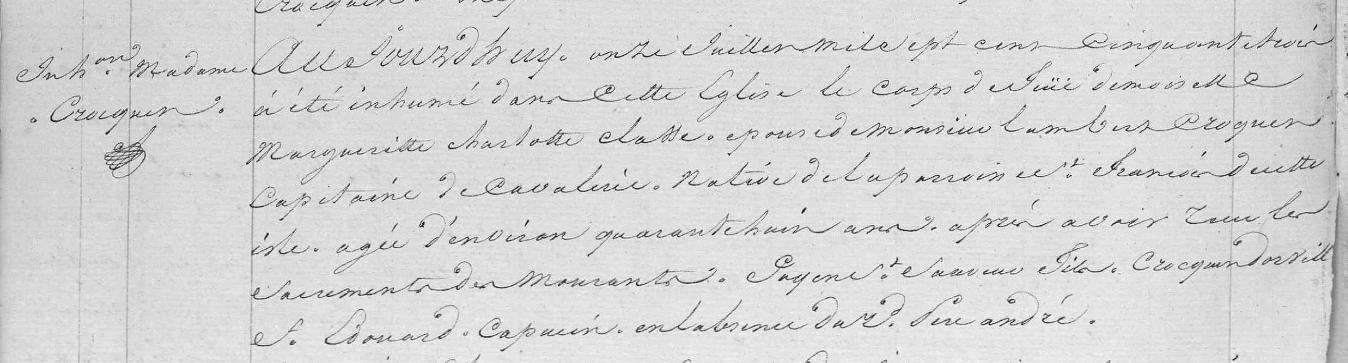 Inh.on Madame
Crocquen.
Au Jourdhuy. onze Juillet mile sept cent Cinquante trois
à été inhumé dans Cette Eglise le Corps de demoiselle
Margueritte charlotte Classe. epouse de Monsieur lambert Crocquen
Capitaine de Cavalerie. Native de la parroisse St. François de cette
isle. agée d'environ quarante huit ans. aprés avoir reçu les
Sacrements des Mourants. Sauveur fils. Crocquendorville
f. Edouard. Capucin. en labsence du rd. Pere andré.